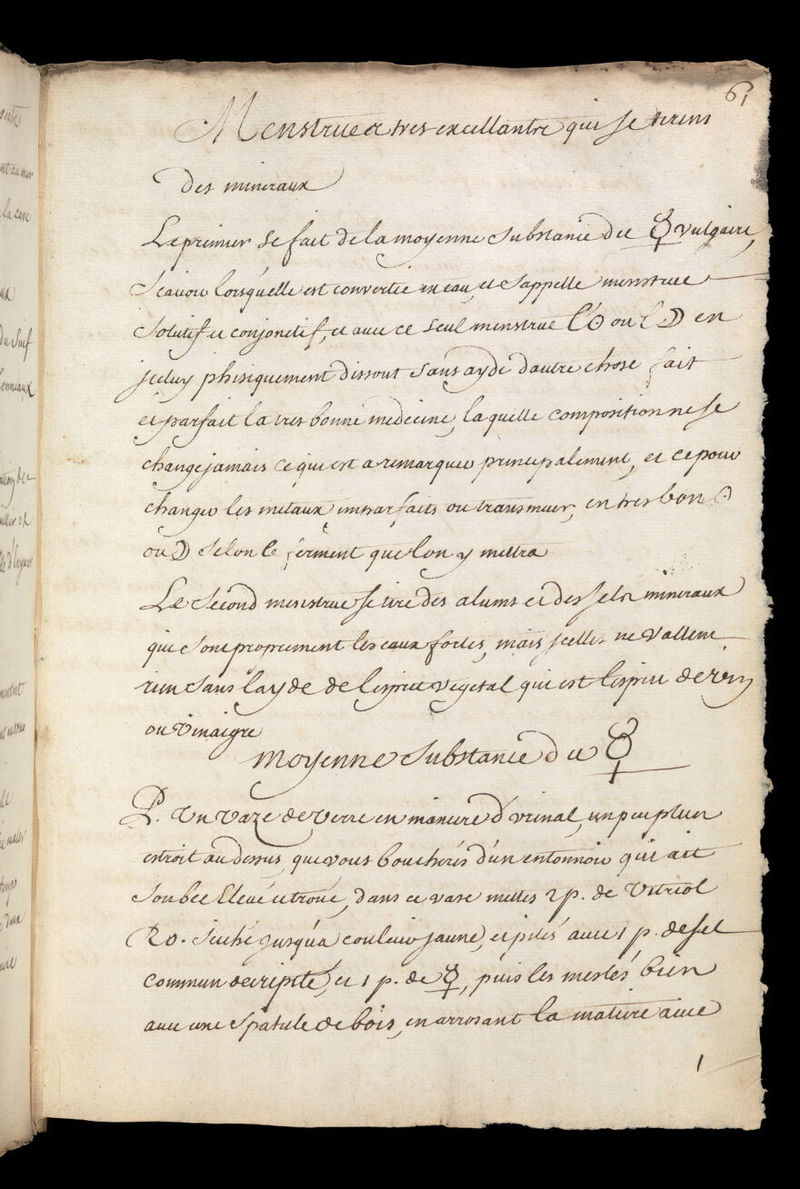 61
Menstrue et tres excellantre qui se tirens
des mineraux
Le premier se fait de la moyenne substance du ☿ vulgaire,
Scauoir lorsquelle est convertie en eau, et s'appelle menstrue
solutif et conjonctif, et auec ce seul menstrue l'☉ ou l ☽ en
jceluy phisiquement dissout sans ayde dautre chose fait
et parfait la tres bonne medecine, laquelle composition ne se
change jamais ce qui est a remarquer principalement, et ce pour
changer les metaux imparfaits ou transmuer, en tres bon ☉
ou ☽ selon le ferment que lon y mettra
Le second menstrue se tire des alums et des sels mineraux
qui sont proprement les eaux fortes, mais jcelles ne vallent
rien sans layde de lesprit vegetal qui est lesprit de vin
ou vinaigre
moyenne substance du ☿
P. Un vaze de verre en maniere d'vrinal, un peu plus
estroit au dessus, que vous boucherés d'un entonnoir qui ait
son bec Eleué et troué, dans ce vase mettes 2 p. de Vitriol
Ro. seché jusqu'a couleur jaune, et pilés auec 1 p. de sel
commun decripité, et 1 p. de ☿, puis les meslés bien
auec une spatule de bois, en arrosant la matiere auec
1